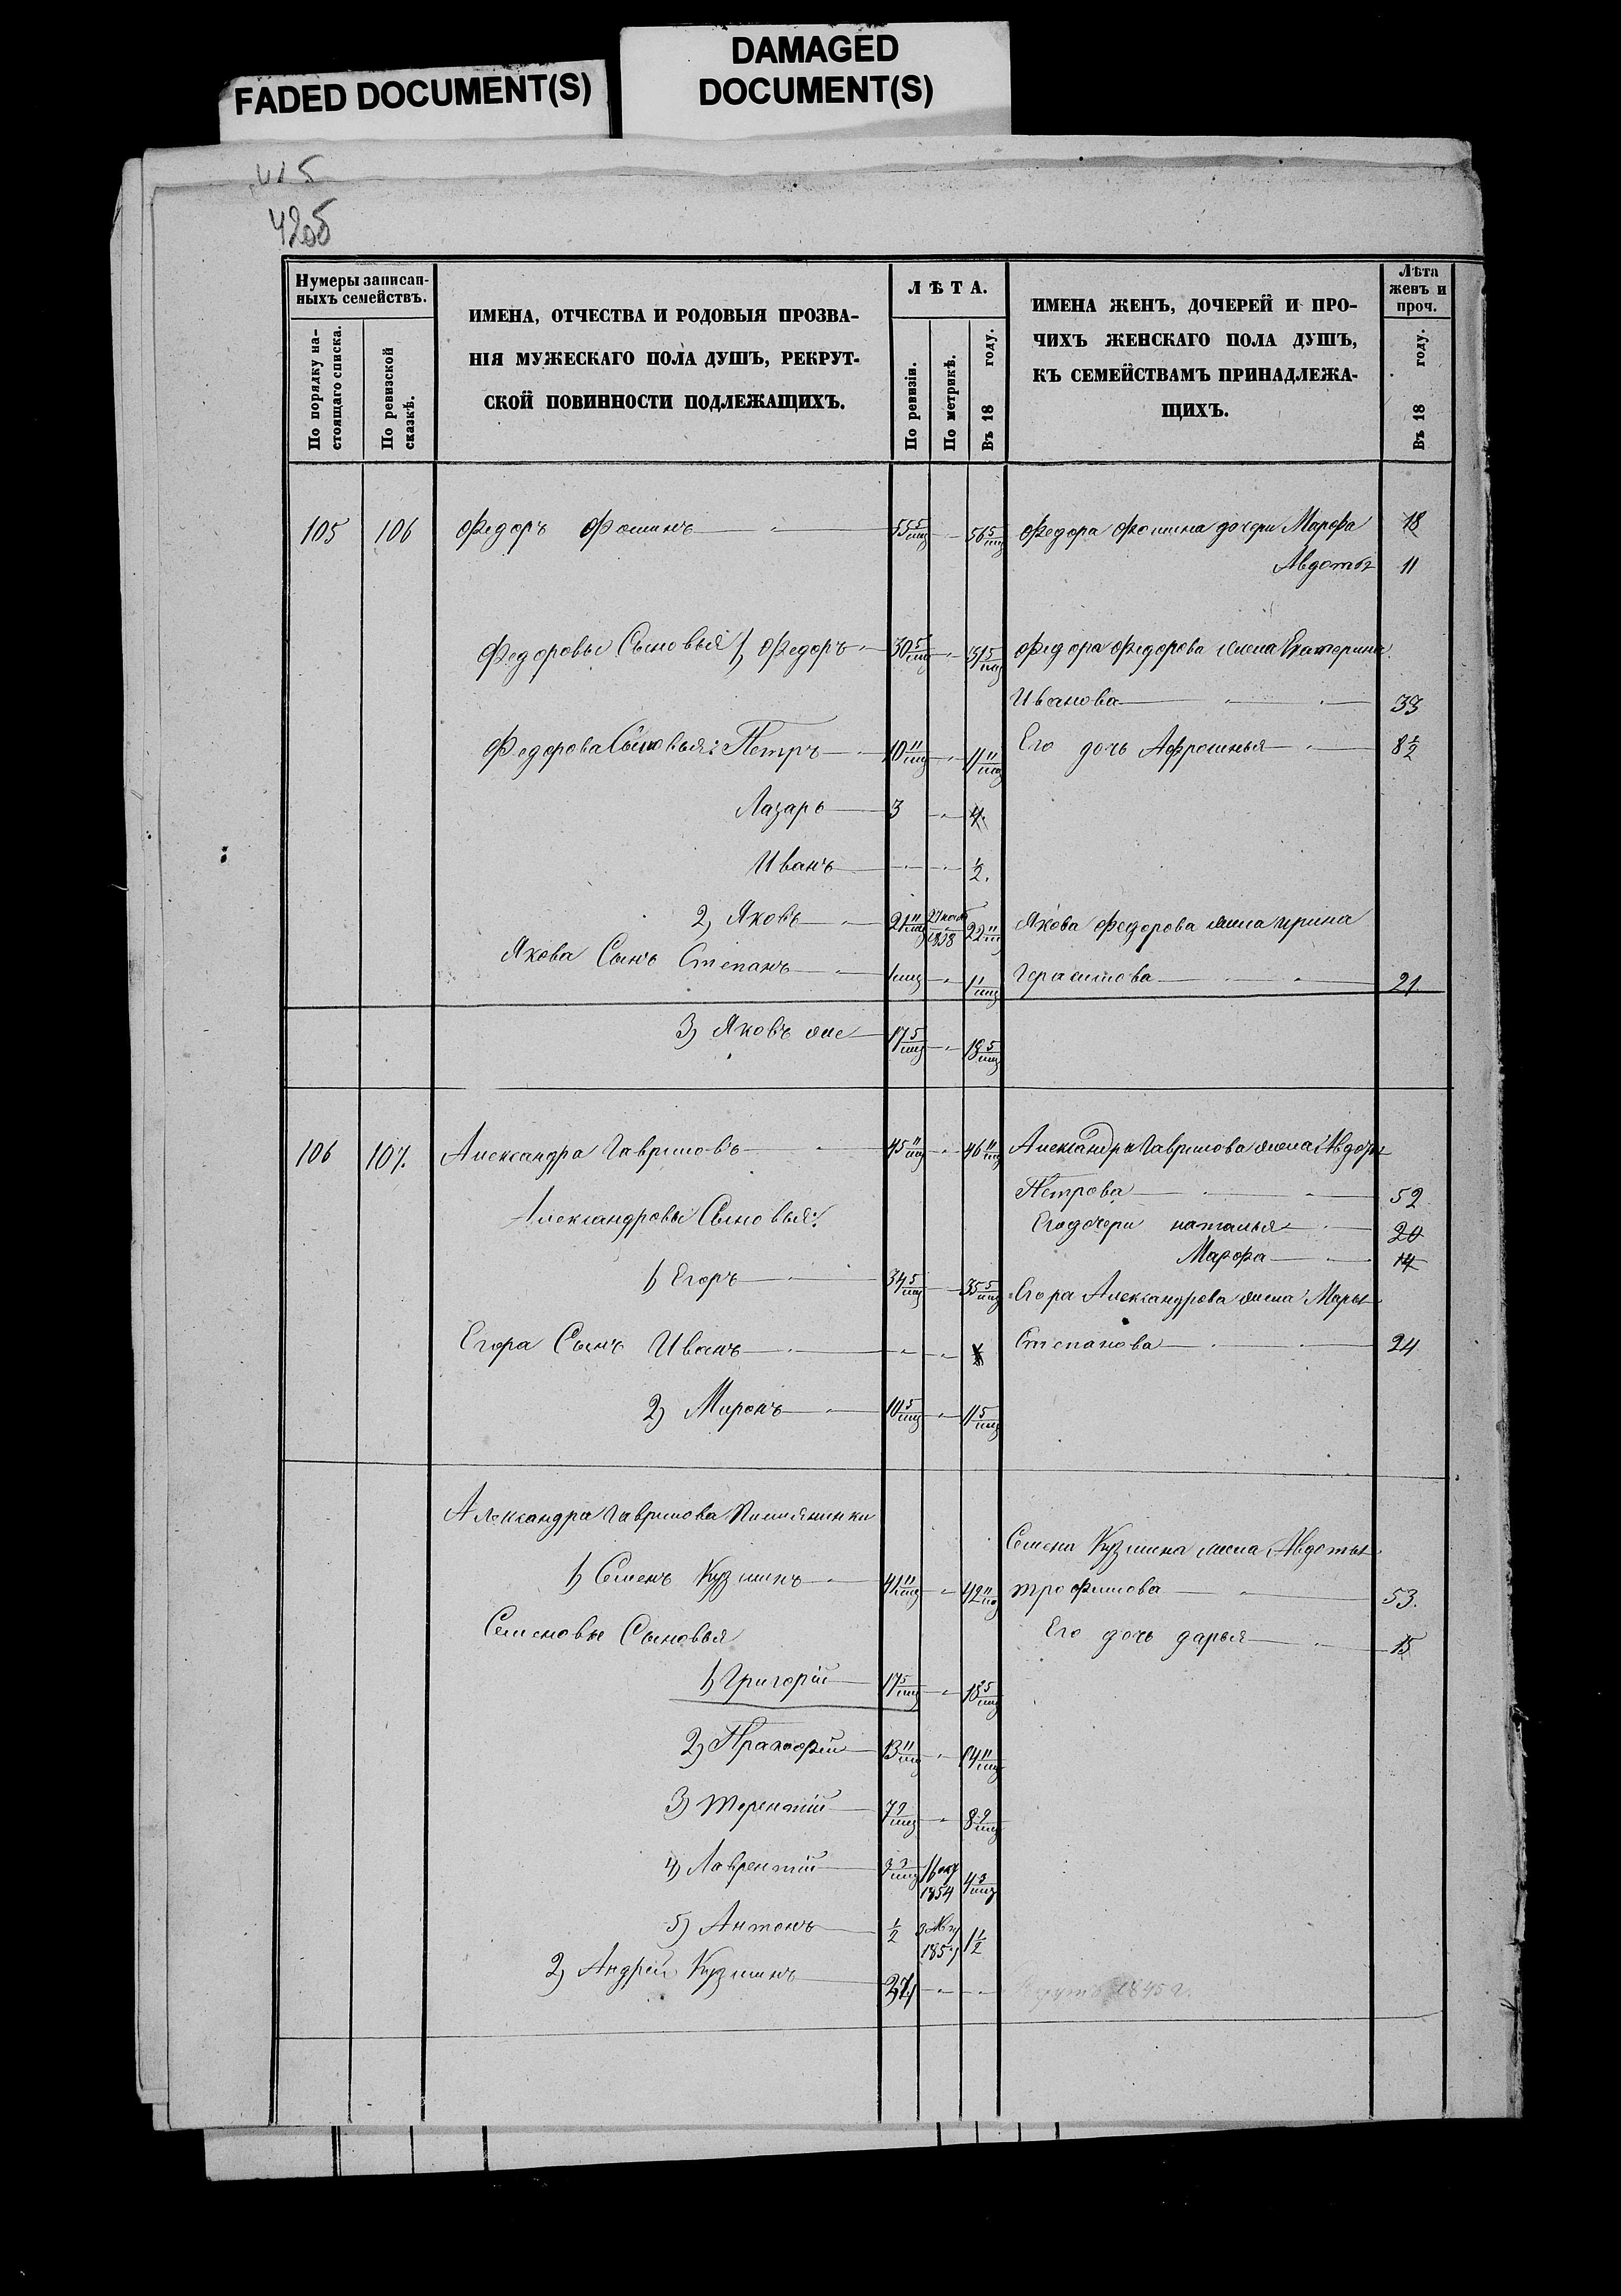 FADED DOCUMENT(S)
DAMAGED
DOCUMENT(S)
415
4205
Нумеры записан-
ныхъ семействъ.
По порядку на-
стоящаго списка.
По ревизской
сказкѣ.
ИМЕНА, ОТЧЕСТВА И РОДОВЫЯ ПРОЗВА-
НІЯ МУЖЕСКАГО ПОЛА ДУШЪ, РЕКРУТ-
СКОЙ ПОВИННОСТИ ПОДЛЕЖАЩИХЪ.
ЛѢТА.
По ревизіи.
По метрикѣ.
Въ 18 году.
ИМЕНА ЖЕНЪ, ДОЧЕРЕЙ И ПРО-
ЧИХЪ ЖЕНСКАГО ПОЛА ДУШЪ,
КЪ СЕМЕЙСТВАМЪ ПРИНАДЛЕЖА-
ЩИХЪ.
Лѣта
женъ и
проч.
Въ 18 году.
105 106 Федоръ Фоминъ 55 5/мц 56 5/мц Федора Фомина дочери Марфа 18
Авдотья 11
Федоровы Сыновья 1) Федоръ 30 5/мц 31 5/мц Федора Федорова жена Екатерина
Иванова 33
Федорова Сыновья: Петръ 10 11/мц 11 11/мц Его дочь Афросинья 8 1/2
Лазарь 3 4.
Иванъ 1/2.
2) Яковъ 21 11/мц 1838 22 11/мц Якова Федорова жена Ирина
Якова Сынъ Степанъ 1 мц 1 1/мц Герасимова 21
3) Яковъ же 17 5/мц 18 5/мц
106 107. Александра Гавриловъ 45 11/мц 46 11/мц Александра Гаврилова жена Авдотья
Петрова 52
Александровы Сыновья: Его дочери наталья 20
Марфа 14
1) Егоръ 34 5/мц 35 5/мц Егора Александрова жена Марья
Егора Сынъ Иванъ Степанова 24
2) Миронъ 10 5/мц 11 5/мц
Александра Гаврилова Племянники
Семена Кузмина жена Авдотья
1) Семенъ Кузминъ 41 11/мц 42 11/мц трофимова 53.
Семеновы Сыновья Его дочь дарья 15
1) Григорій 17 5/мц 18 5/мц
2) Пракофій 13 11/мц 14 11/мц
3) терентій 7 9/мц 8 9/мц
4) Лаврентій 3 3/мц 16 окт 1854 4 3/мц
5) Антонъ 1/2 1857 1 1/2
2) Андрей Кузминъ 27 1845 г.